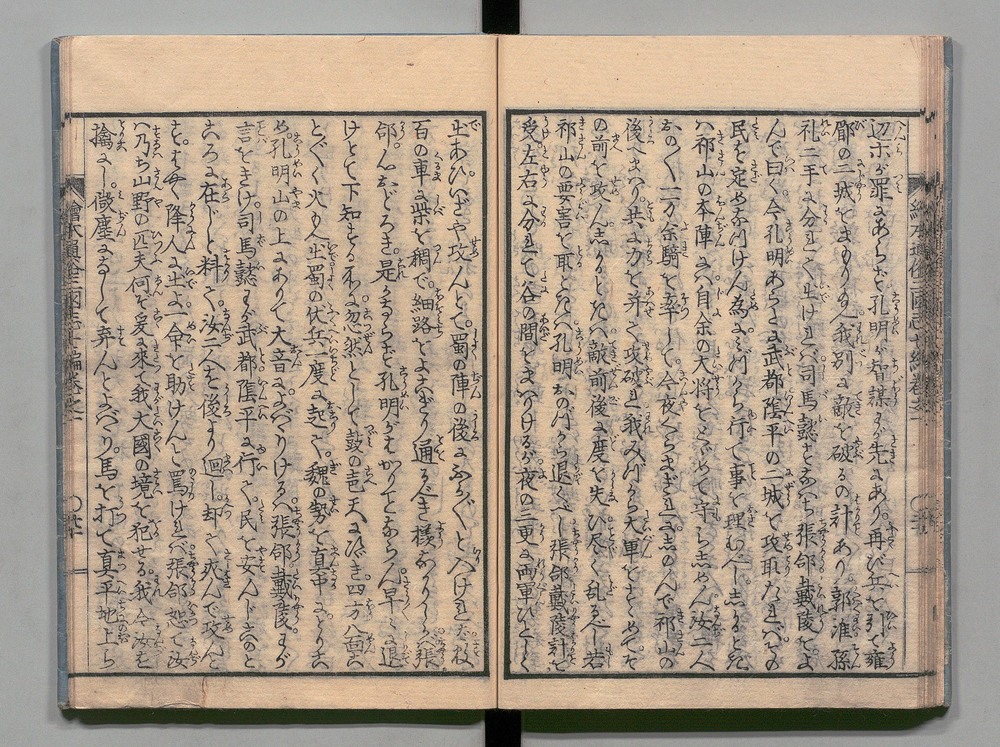 汝ホが罪にあらず孔明が智謀我が先にあり再び兵を引て雍
郿の二城をまもり玉へ我別に敵を破るの計あり郭淮孫
礼二手に分れて出ければ司馬懿すなはち張郃戴陵をよ
んで曰く今孔明あらたに武都陰平の二城を攻取たればその
民を定めなつけん為にみづから行て事を理むべししかるとき
は祁山の本陣には自余の大将をとどめて守らしめん汝二人
おのおの一万余騎を率して今夜くらまぎれにしのんで祁山の
後へまはり共に力を并て攻破れ我みづから大軍をととのへてそ
の前を攻んしかるときは敵前後に度を失ひ尽く乱るべし若
祁山の要害を取ときは孔明おのづから退くべし張郃戴陵計を
受左右に分れて谷の間をまはりけるが夜の三更に両軍ひとしく
出あひいざや攻んとて蜀の陣の後にふかぶかと入ければ数
百の車に柴を積で細路をよこぎり通るべき様なかりしかば張
郃心おどろき是かならず孔明がはかりことならん早々に退
けとて下知する所に忽然として鼓の声天にひびき四方八面こ
とごとく火もへ出蜀の伏兵一度に起て魏の勢を真中にとりこ
め孔明山の上にありて大音によばはりけるは張郃戴陵わが
言をきけ司馬懿わが武都陰平に行て民を安んじこのと
ころに在じと料て汝二人を後より廻し却て死んで攻んと
すはやく降人に出よ一命を助けんと罵ければ張郃怒て汝
は乃ち山野の匹夫何ぞ爰に来て我大國の境を犯せる我今汝を
擒にし微塵になして弃んとよばはり馬を打て真平地に上ら
繪本通俗三國志七編巻之一
繪本通俗三國志七編巻之一